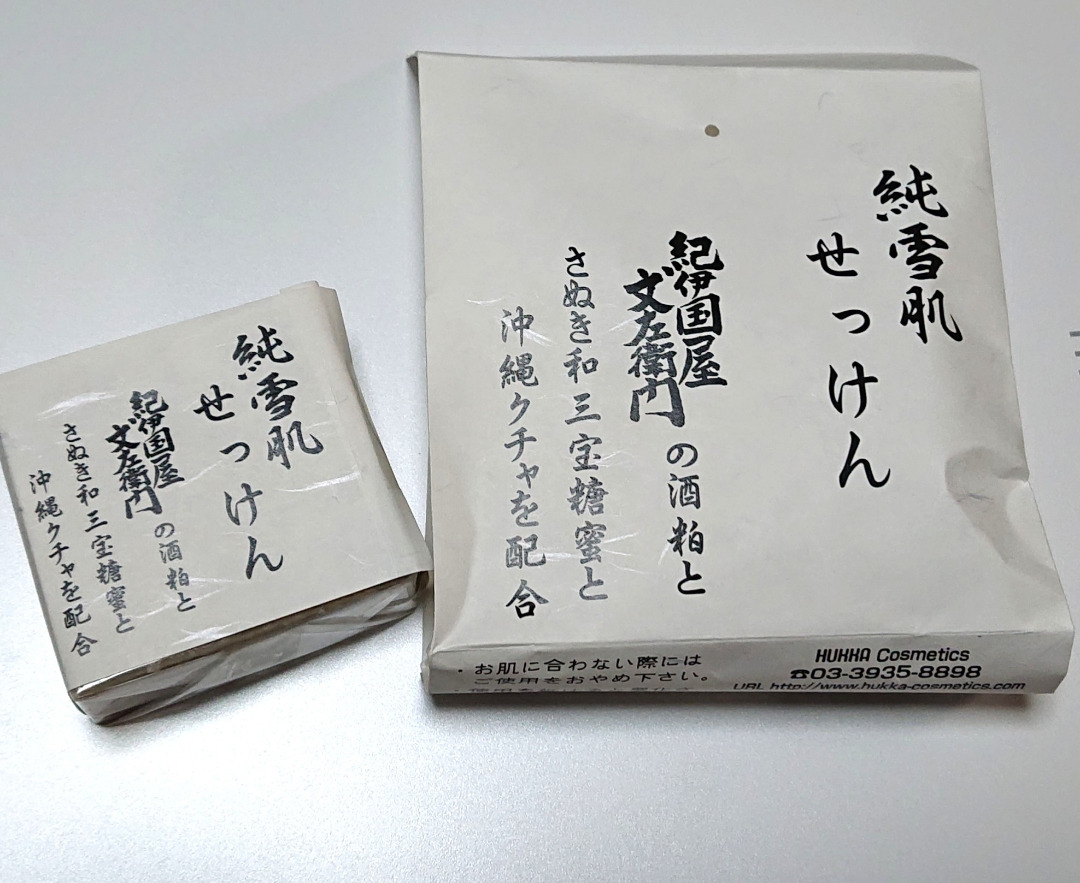 純雪肌
せっけん
紀伊国屋
文左衛門の酒粕と
さぬき和三宝糖蜜と
沖縄クチャを配合
純雪肌
せっけん
紀伊国屋
文左衛門の酒粕と
さぬき和三宝糖蜜と
沖縄クチャを配合
・お肌に合わない際には
ご使用をおやめ下さい。
HUKKA Cosmetics
☎03-3935-8898
URL http://www.hukka-cosmetics.com